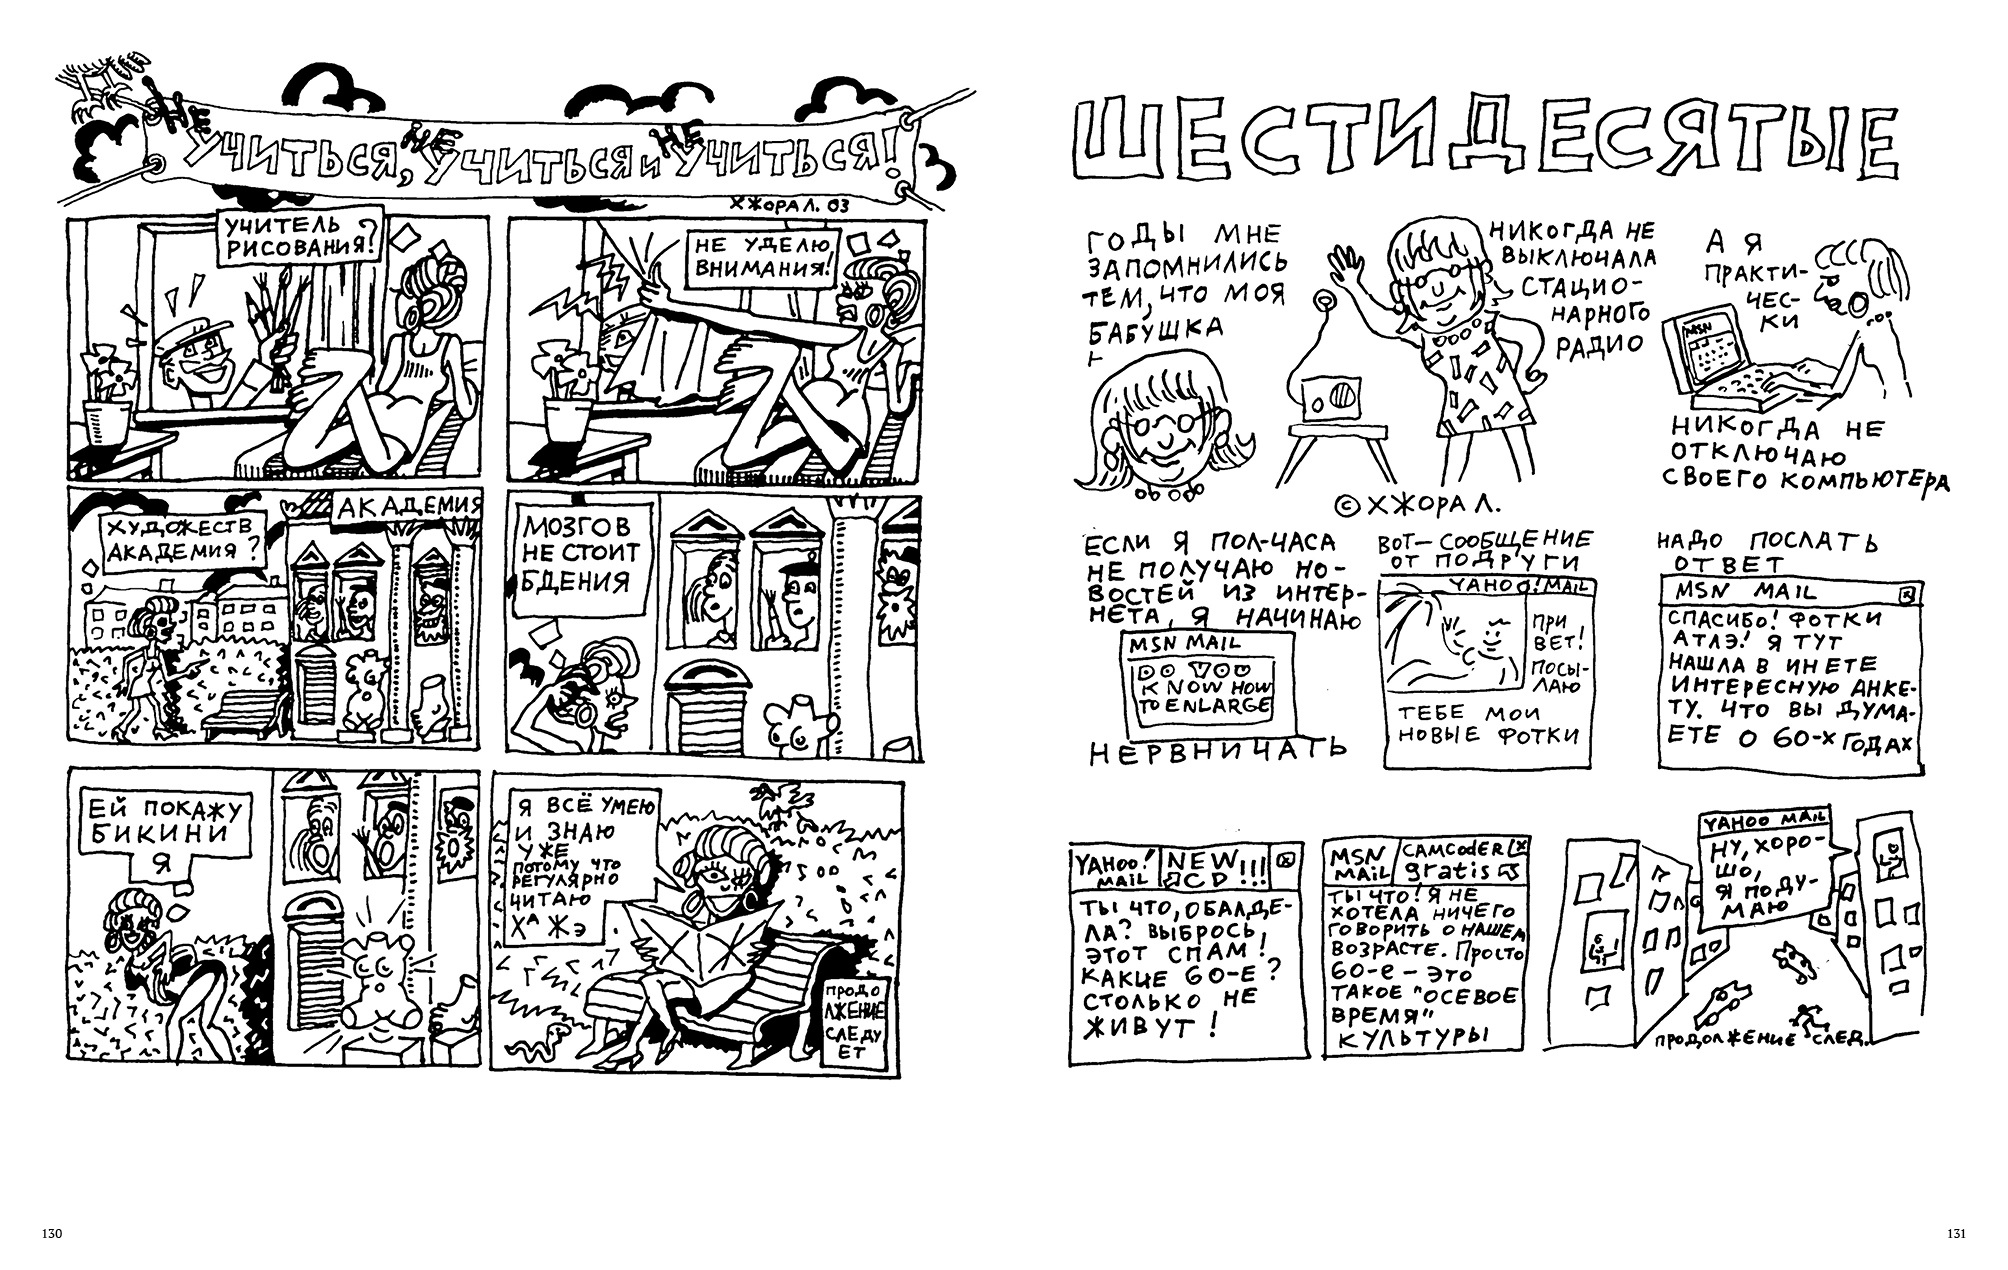 НЕ НЕ НЕ
УЧИТЬСЯ, УЧИТЬСЯ И УЧИТЬСЯ!
ХЖОРА Л. 03
УЧИТЕЛЬ
РИСОВАНИЯ?
НЕ УДЕЛЮ
ВНИМАНИЯ!
ХУДОЖЕСТВ
АКАДЕМИЯ?
АКАДЕМИЯ
МОЗГОВ
НЕ СТОИТ
БДЕНИЯ
ЕЙ ПОКАЖУ
БИКИНИ
Я
Я ВСЁ УМЕЮ
И ЗНАЮ
УЖЕ
ПОТОМУ ЧТО
РЕГУЛЯРНО
ЧИТАЮ
ХА ЖЭ
ПРОДО
ЛЖЕНИЕ
СЛЕДУ
ЕТ
130
ШЕСТИДЕСЯТЫЕ
ГОДЫ МНЕ
ЗАПОМНИЛИСЬ
ТЕМ, ЧТО МОЯ
БАБУШКА
НИКОГДА НЕ
ВЫКЛЮЧАЛА
СТАЦИО-
НАРНОГО
РАДИО
А Я
ПРАКТИ-
ЧЕС-
КИ
MSN
НИКОГДА НЕ
ОТКЛЮЧАЮ
СВОЕГО КОМПЬЮТЕРА
© ХЖОРА Л.
ЕСЛИ Я ПОЛ-ЧАСА
НЕ ПОЛУЧАЮ НО-
ВОСТЕЙ ИЗ ИНТЕР-
НЕТА, Я НАЧИНАЮ
MSN MAIL
DO YOU
KNOW HOW
TO ENLARGE
НЕРВНИЧАТЬ
ВОТ — СООБЩЕНИЕ
ОТ ПОДРУГИ
YAHOO! MAIL
ПРИ
ВЕТ!
ПОСЫ-
ЛАЮ
ТЕБЕ МОИ
НОВЫЕ ФОТКИ
НАДО ПОСЛАТЬ
ОТВЕТ
MSN MAIL
СПАСИБО! ФОТКИ
АТЛЭ! Я ТУТ
НАШЛА В ИНЕТЕ
ИНТЕРЕСНУЮ АНКЕ-
ТУ. ЧТО ВЫ ДУМА-
ЕТЕ О 60-Х ГОДАХ
YAHOO!
MAIL
NEW
CD!!!
ТЫ ЧТО, ОБАЛДЕ-
ЛА? ВЫБРОСЬ
ЭТОТ СПАМ!
КАКИЕ 60-Е?
СТОЛЬКО НЕ
ЖИВУТ!
MSN
MAIL
CAMCODER
gratis
ТЫ ЧТО! Я НЕ
ХОТЕЛА НИЧЕГО
ГОВОРИТЬ О НАШЕМ
ВОЗРАСТЕ. ПРОСТО
60-е — ЭТО
ТАКОЕ "ОСЕВОЕ
ВРЕМЯ"
КУЛЬТУРЫ
YAHOO MAIL
НУ, ХОРО-
ШО,
Я ПОДУ-
МАЮ
ПРОДОЛЖЕНИЕ СЛЕД.
131